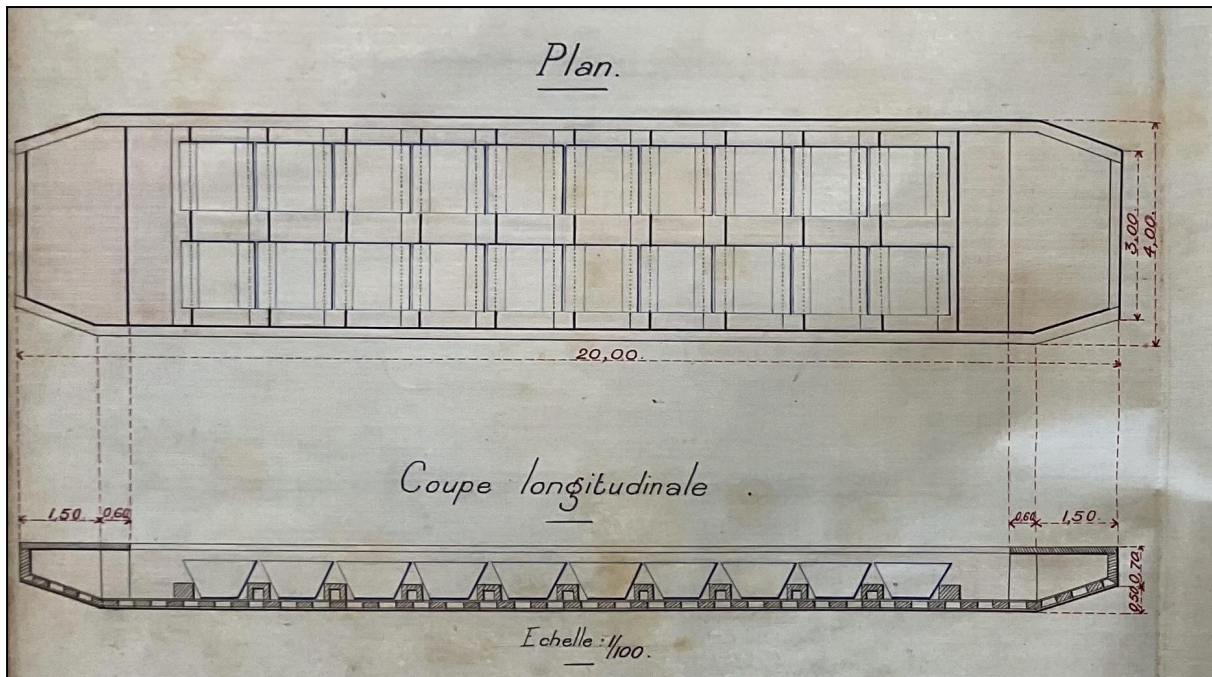 Plan.
3,00
4,00
20,00.
Coupe longitudinale .
1,50 0,60 0,60 1,50
0,70
0,50
Echelle : 1/100.